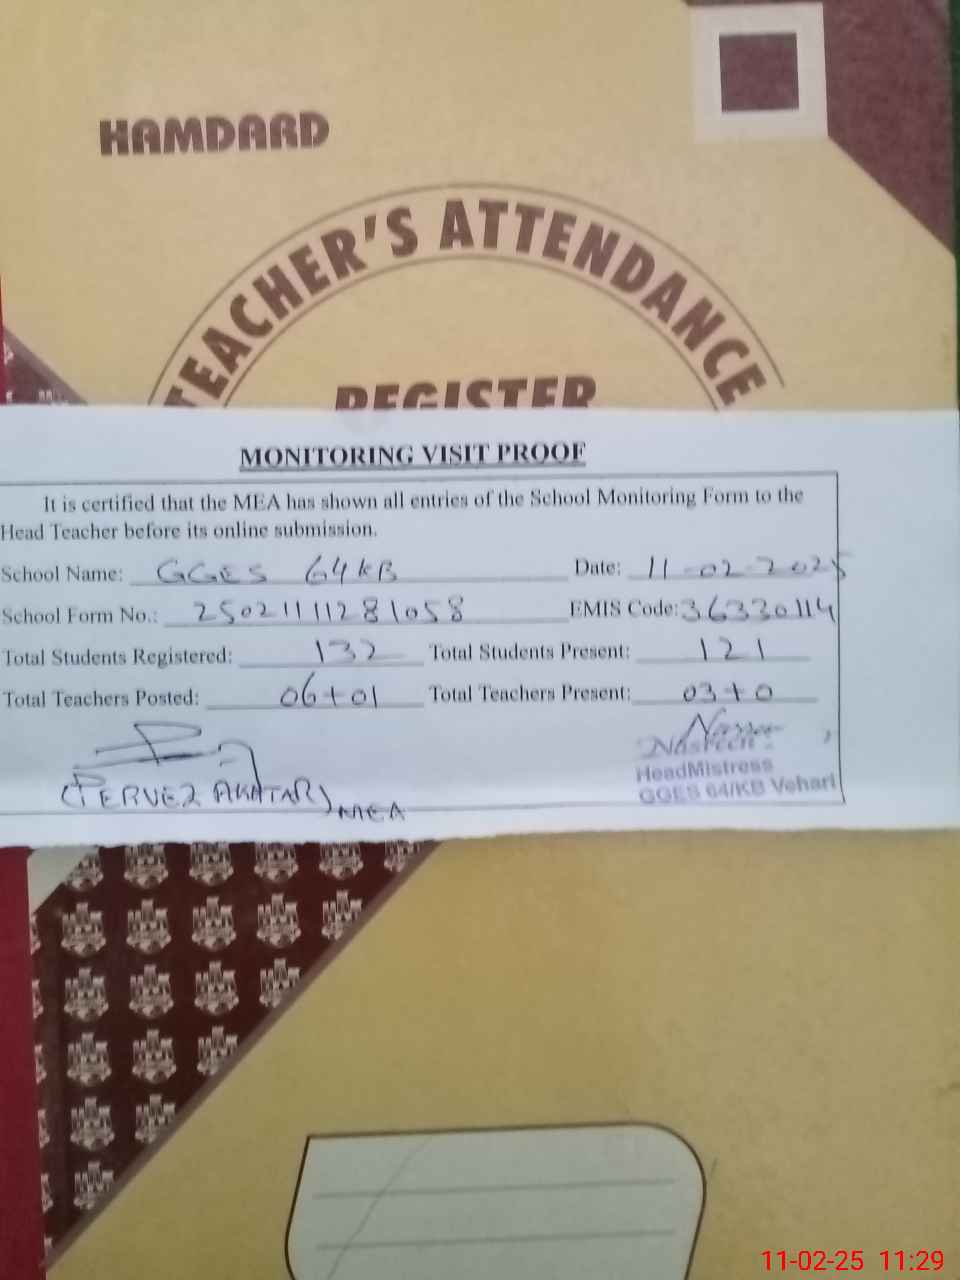 HAMDARD
TEACHER'S ATTENDANCE
REGISTER
MONITORING VISIT PROOF
It is certified that the MEA has shown all entries of the School Monitoring Form to the
Head Teacher before its online submission.
School Name: GGES 64 KB Date: 11-02-2025
School Form No.: 25021111281058 EMIS Code: 36330114
Total Students Registered: 132 Total Students Present: 121
Total Teachers Posted: 06+01 Total Teachers Present: 03+0
(PERVEZ AKHTAR) MEA
Nasreen
HeadMistress
GGES 64/KB Vehari
11-02-25 11:29